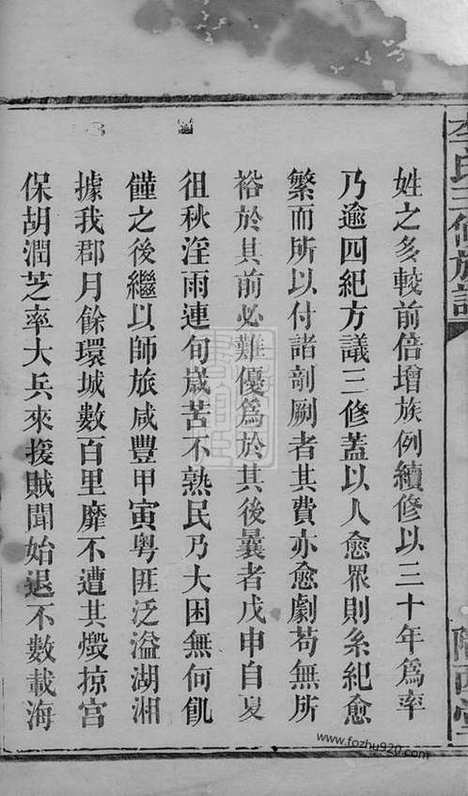 李氏三修族譜
姓之多較前倍增族例續修以三十年爲率
乃逾四紀方議三修蓋以人愈眾則系紀愈
繁而所以付諸剞劂者其費亦愈劇苟無所
裕於其前必難優爲於其後曩者戊申自夏
徂秋淫雨連旬歲苦不熟民乃大困無何飢
饉之後繼以師旅咸豐甲寅粤匪泛溢湖湘
據我郡月餘環城數百里靡不遭其燬掠宫
保胡潤芝率大兵來援賊聞始退不數載海
www.fozhu920.com